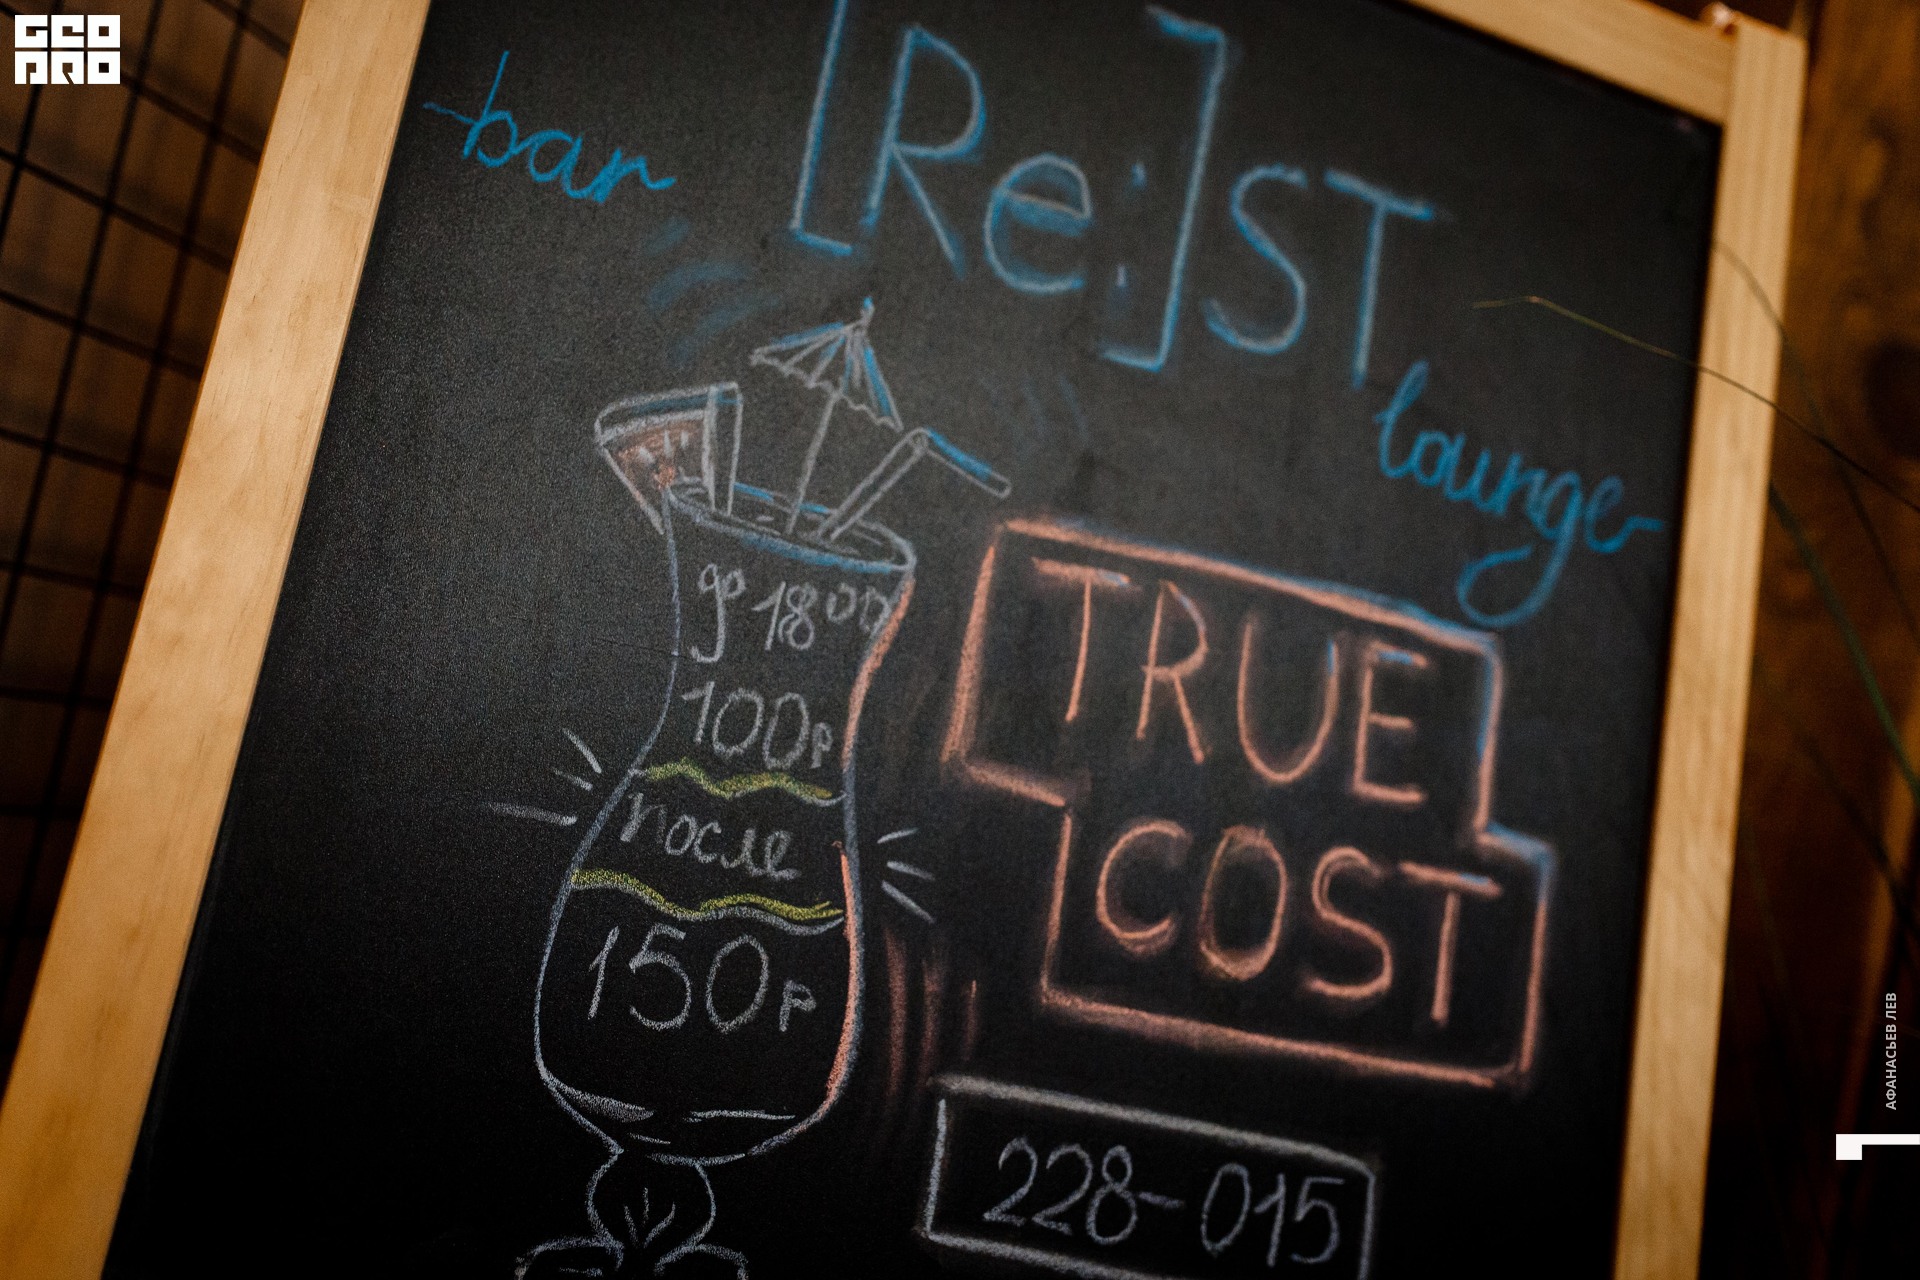 GEO
PRO
bar
[Re:]ST
lounge
до 18⁰⁰
100р
после
150р
TRUE
COST
228-015
АФАНАСЬЕВ ЛЕВ